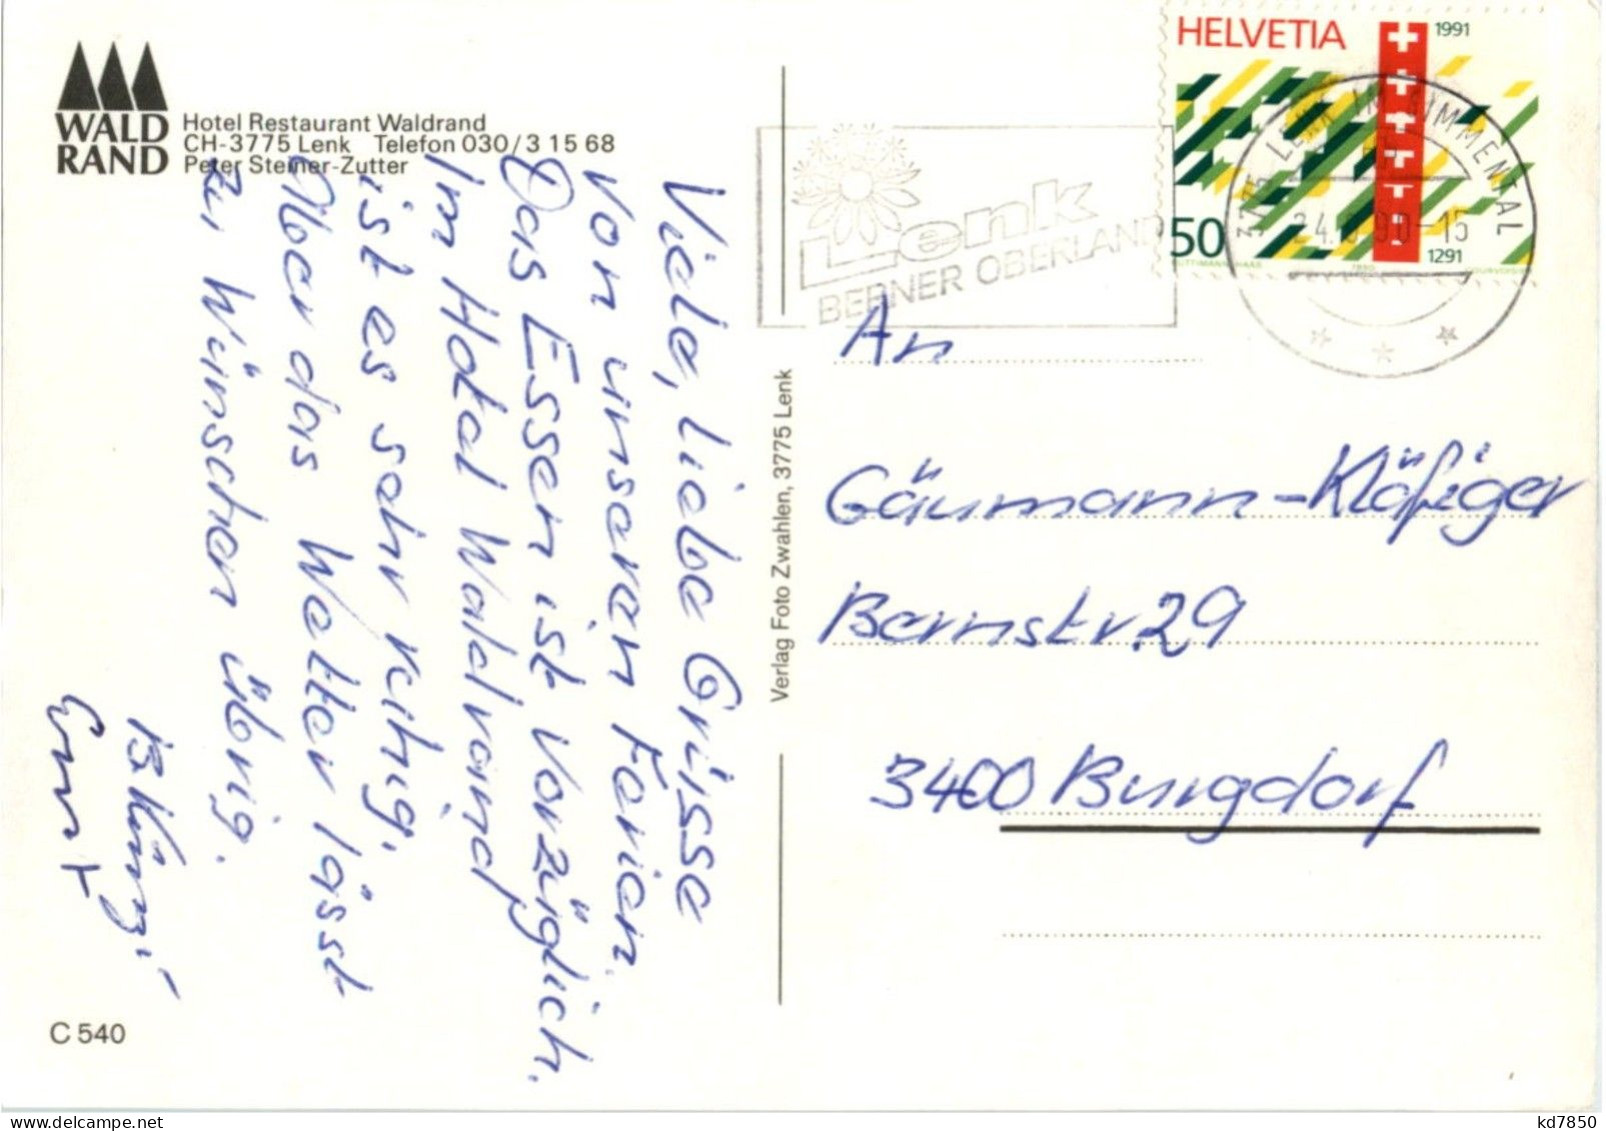 WALD
RAND
Hotel Restaurant Waldrand
CH-3775 Lenk Telefon 030/3 15 68
Peter Steiner-Zutter
Viele, liebe Grüsse
von unseren Ferien.
Das Essen ist vorzüglich.
Im Hotel Waldrand
ist es sehr ruhig.
Aber das Wetter lässt
zu Wünschen übrig.
B Künzi
Ernst
C 540
Verlag Foto Zwahlen, 3775 Lenk
Lenk
BERNER OBERLAND
HELVETIA
1991
50
1291
1990
3775 LENK IM SIMMENTAL
An
Gäumann-Kläfiger
Bernstr. 29
3400 Burgdorf
kd7850